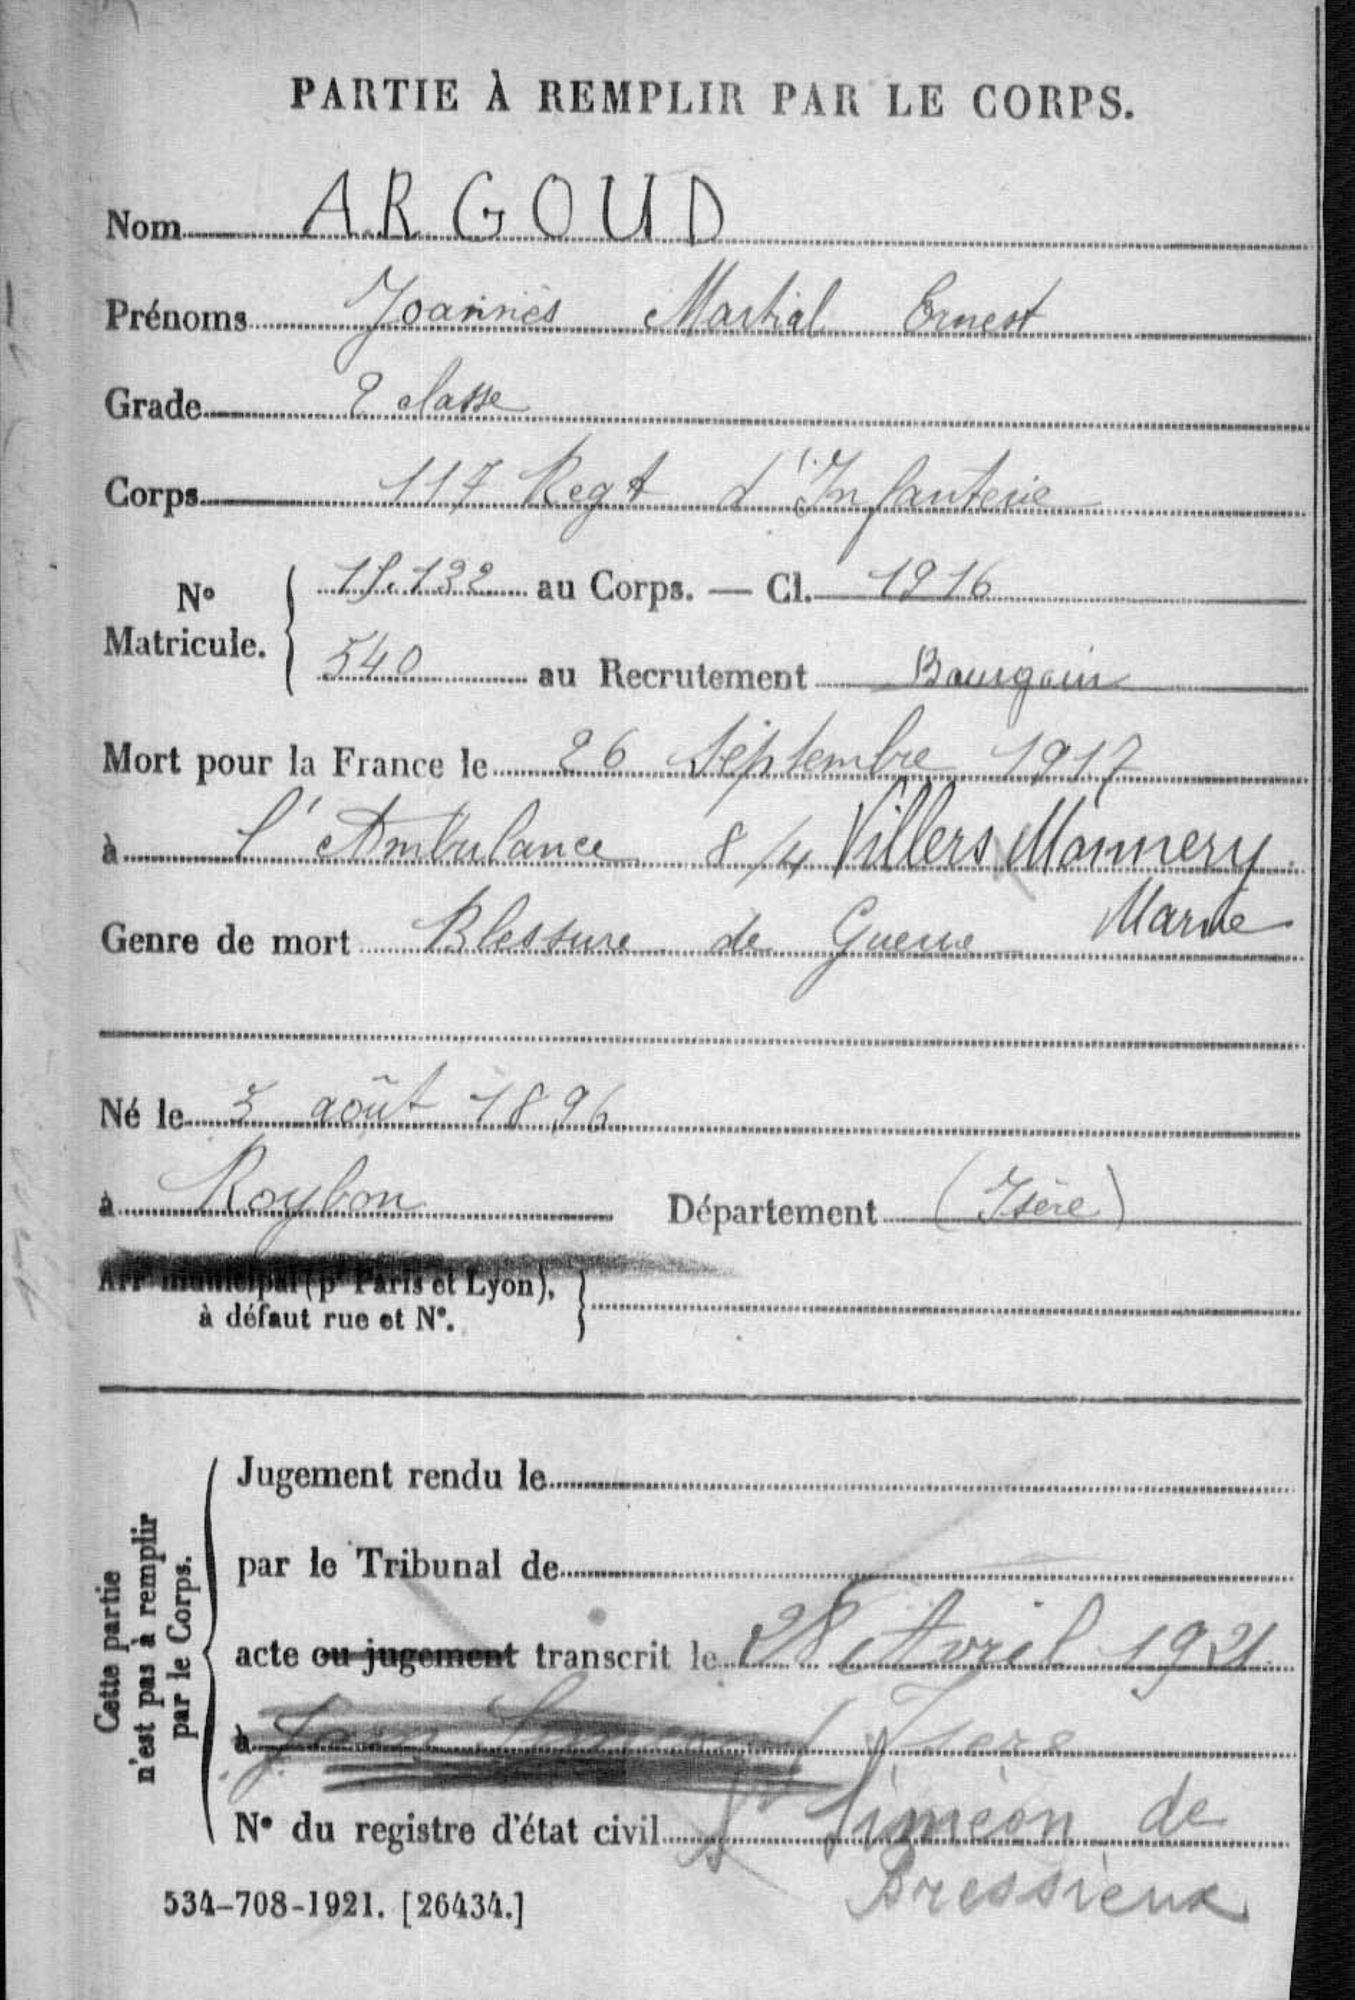 PARTIE À REMPLIR PAR LE CORPS.
Nom ARGOUD
Prénoms Joannès Martial Ernest
Grade 2 classe
Corps 117 Regt d'Infanterie
N° Matricule. 15.132 au Corps. — Cl. 1916
540 au Recrutement Bourgoin
Mort pour la France le 26 Septembre 1917
à l'Ambulance 8/4 Villers Marmery
Marne
Genre de mort Blessure de Guerre
Né le 5 août 1896
à Roybon Département (Isère)
Arr municipal (pr Paris et Lyon),
à défaut rue et N°.
Cette partie
n'est pas à remplir
par le Corps.
Jugement rendu le
par le Tribunal de
acte ou jugement transcrit le 28 Avril 1921
à Isère
N° du registre d'état civil St Siméon de
Bressieux
534-708-1921. [26434.]